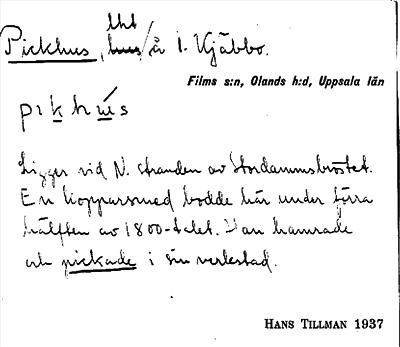 Pickhus, lht hus/å i. Kjäbbo.
Films s:n, Olands h:d, Uppsala län
pɪkhús
Ligger vid N. stranden av Stordammsbrottet.
En kopparsmed bodde här under förra
hälften av 1800-talet. Han hamrade
och pickade i sin verkstad.
HANS TILLMAN 1937